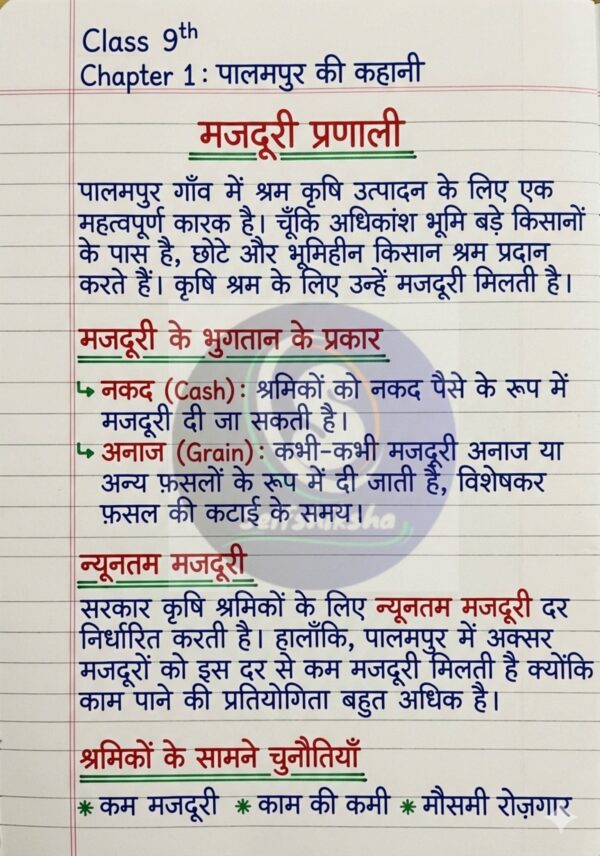 Class 9th
Chapter 1: पालमपुर की कहानी
मजदूरी प्रणाली
पालमपुर गाँव में श्रम कृषि उत्पादन के लिए एक
महत्वपूर्ण कारक है। चूँकि अधिकांश भूमि बड़े किसानों
के पास है, छोटे और भूमिहीन किसान श्रम प्रदान
करते हैं। कृषि श्रम के लिए उन्हें मजदूरी मिलती है।
मजदूरी के भुगतान के प्रकार
↳ नकद (Cash): श्रमिकों को नकद पैसे के रूप में
मजदूरी दी जा सकती है।
↳ अनाज (Grain): कभी-कभी मजदूरी अनाज या
अन्य फ़सलों के रूप में दी जाती है, विशेषकर
फ़सल की कटाई के समय।
SelfShiksha
न्यूनतम मजदूरी
सरकार कृषि श्रमिकों के लिए न्यूनतम मजदूरी दर
निर्धारित करती है। हालाँकि, पालमपुर में अक्सर
मजदूरों को इस दर से कम मजदूरी मिलती है क्योंकि
काम पाने की प्रतियोगिता बहुत अधिक है।
श्रमिकों के सामने चुनौतियाँ
* कम मजदूरी * काम की कमी * मौसमी रोज़गार